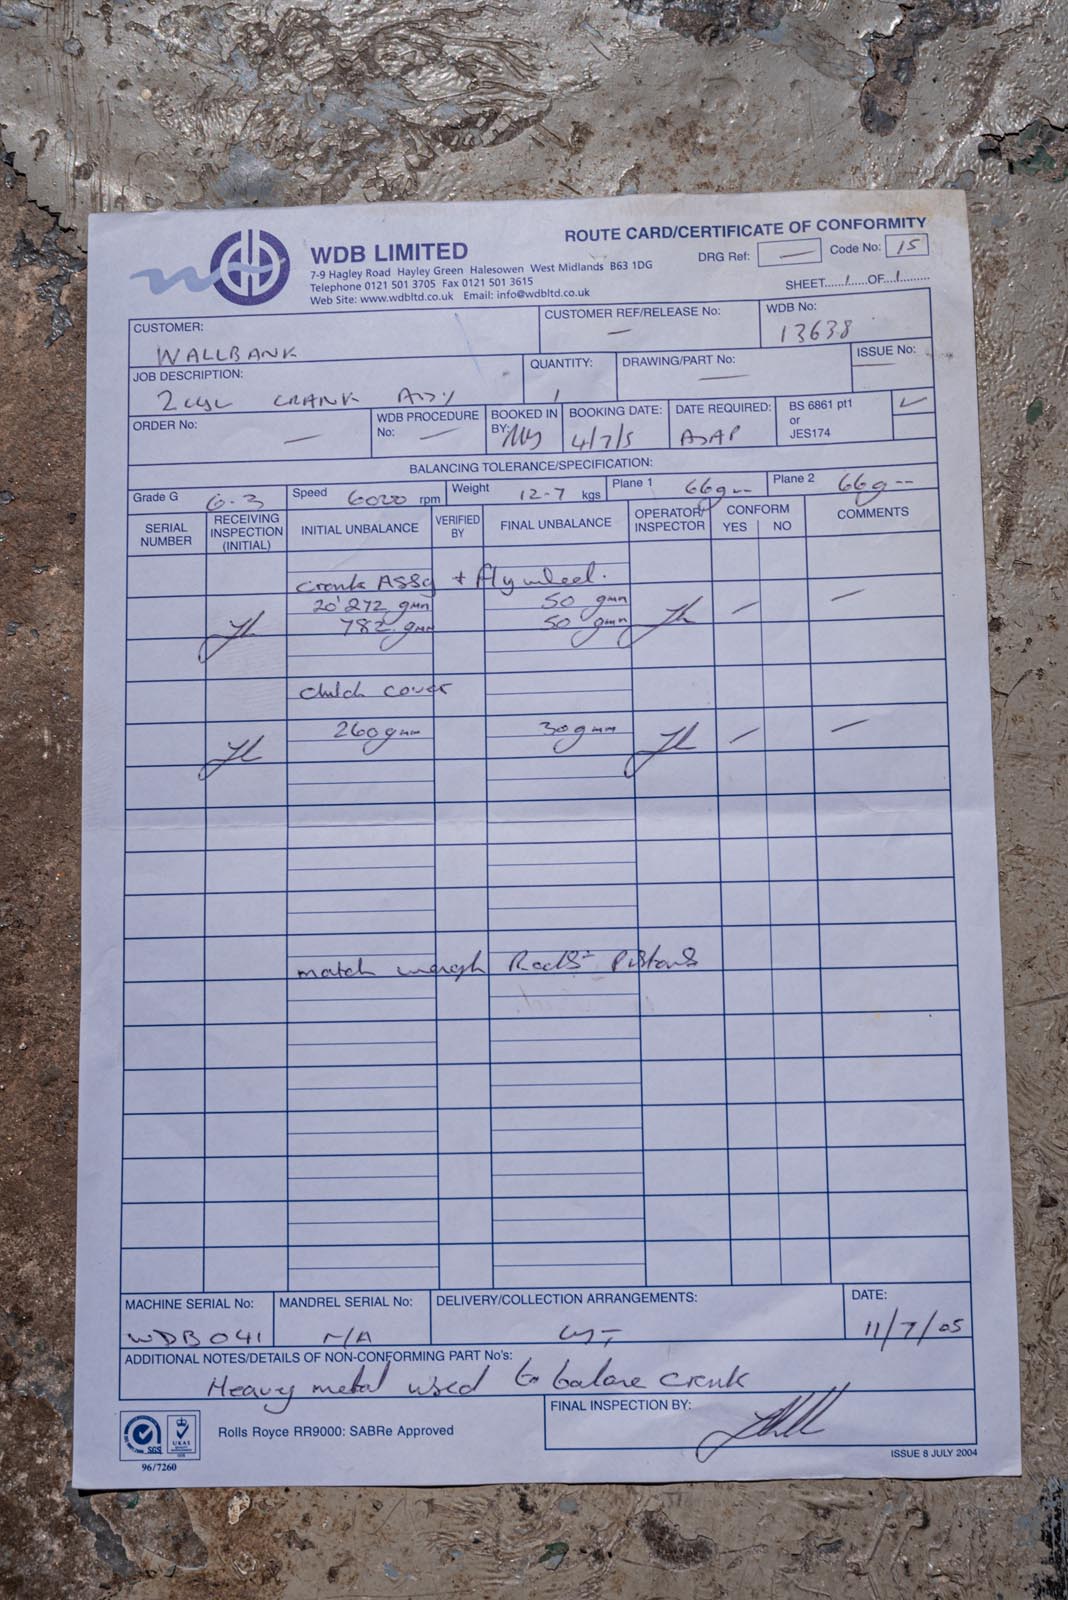 ROUTE CARD/CERTIFICATE OF CONFORMITY
WDB LIMITED
DRG Ref: — Code No: 15
7-9 Hagley Road Hayley Green Halesowen West Midlands B63 1DG
Telephone 0121 501 3705 Fax 0121 501 3615
Web Site: www.wdbltd.co.uk Email: info@wdbltd.co.uk
SHEET 1 OF 1
CUSTOMER: CUSTOMER REF/RELEASE No: WDB No:
WALLBANK — 13638
JOB DESCRIPTION: QUANTITY: DRAWING/PART No: ISSUE No:
2 cyl CRANK ASSY 1 — —
ORDER No: WDB PROCEDURE No: BOOKED IN BY: BOOKING DATE: DATE REQUIRED: BS 6861 pt1 or JES174
— — 4/7/5 ASAP
BALANCING TOLERANCE/SPECIFICATION:
Grade G 6.3 Speed 6000 rpm Weight 12-7 kgs Plane 1 66g Plane 2 66g
SERIAL NUMBER RECEIVING INSPECTION (INITIAL) INITIAL UNBALANCE VERIFIED BY FINAL UNBALANCE OPERATOR/INSPECTOR CONFORM YES NO COMMENTS
crank ASSy + flywheel.
20'272 gmm 50 gmm
782 gmm 50 gmm
clutch cover
260gmm 30gmm
match weigh Rods + Pistons
MACHINE SERIAL No: MANDREL SERIAL No: DELIVERY/COLLECTION ARRANGEMENTS: DATE:
WDB041 N/A 11/7/05
ADDITIONAL NOTES/DETAILS OF NON-CONFORMING PART No's:
Heavy metal used to balance crank
FINAL INSPECTION BY:
SGS UKAS
Rolls Royce RR9000: SABRe Approved
96/7260
ISSUE 8 JULY 2004